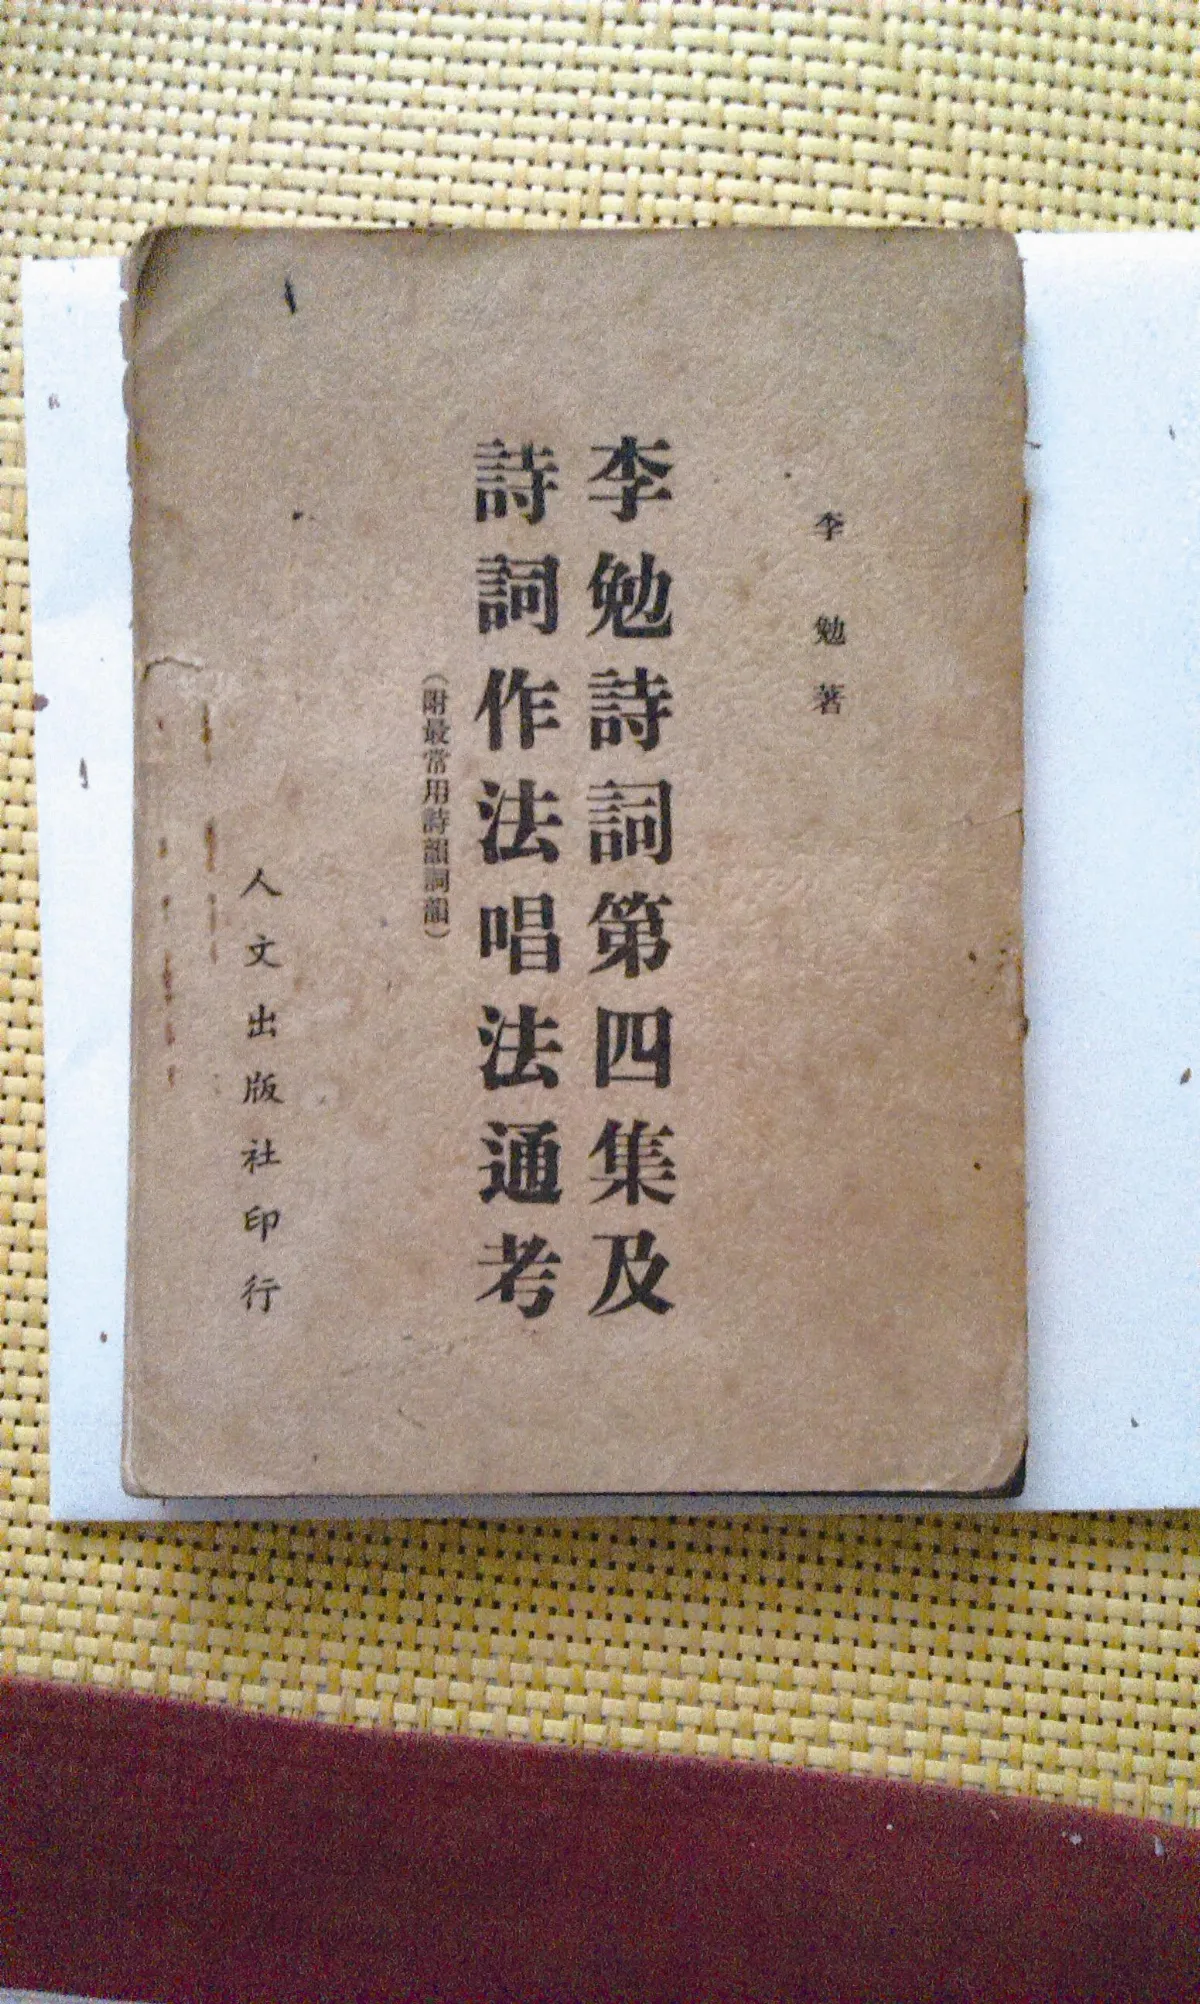 李勉著
李勉詩詞第四集及
詩詞作法唱法通考
（附最常用詩韻詞韻）
人文出版社印行